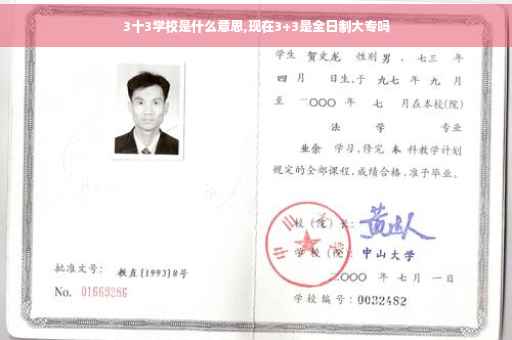 3十3学校是什么意思,现在3+3是全日制大专吗
学生 贺文龙 性别 男 、七三 年
四 月 日生,于 九七 年 九 月
至 二〇〇〇 年 七 月在本校(院)
法 学 专业
业余 学习,修完 本 科教学计划
规定的全部课程,成绩合格,准予毕业。
校(院)长:
学校(院): 中山大学
二〇〇〇 年 七 月 一 日
批准文号: 教直[1993]8号
No. 01669286
学校编号: 0032482